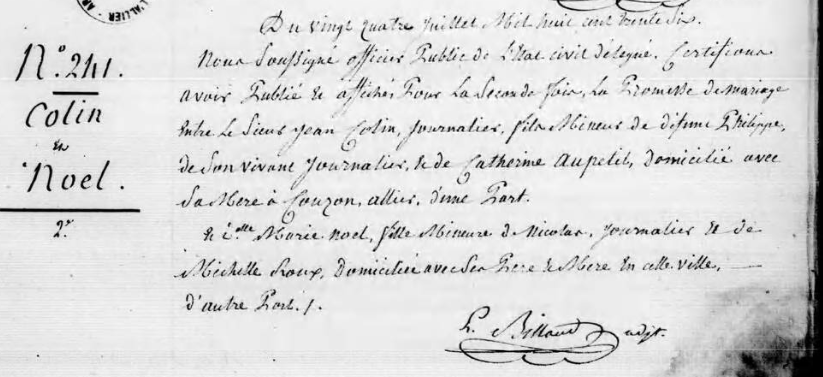 L'ALLIER - AR
Du vingt quatre Juillet Mil huit cent trente Six.
N.º 241.
Colin
en
Noel.
2.e
Nous Soussigné officier Public de l'Etat civil délégué, Certifions
avoir Publié & affiché Pour La Seconde fois, La Promesse de mariage
Entre Le Sieur Jean Colin, Journalier, fils Mineur de défunt Philippe,
de Son vivant Journalier, & de Catherine Aupetit, domicilié avec
Sa Mere à Couzon, allier, d'une Part.
& D.elle Marie noel, fille Mineure de Nicolas, Journalier & de
Michelle Roux, Domiciliée avec Ses Pere & Mere En cette ville,
d'autre Part ./.
Billaud adjt.